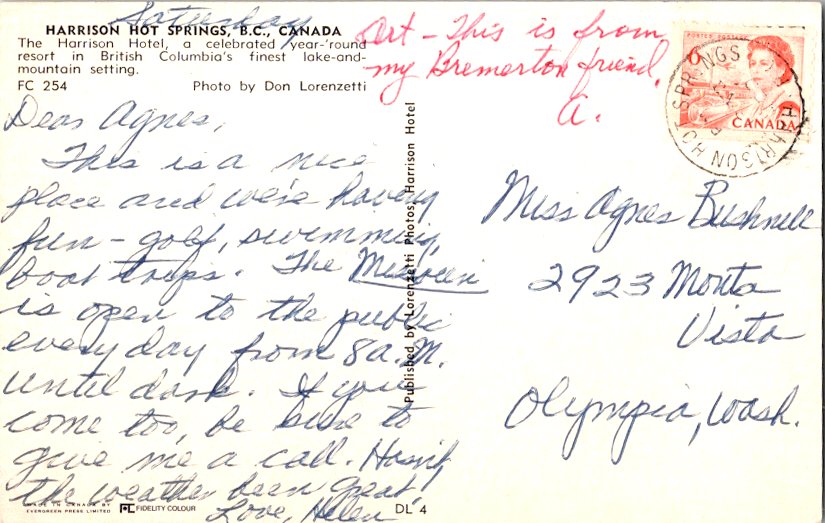 Saturday
HARRISON HOT SPRINGS, B.C., CANADA
The Harrison Hotel, a celebrated year-'round
resort in British Columbia's finest lake-and-
mountain setting.
FC 254 Photo by Don Lorenzetti
Art - This is from
my Bremerton friend.
A.
POSTES POSTAGE
6
CANADA
HARRISON HOT SPRINGS
Dear Agnes,
This is a nice
place and we're having
fun - golf, swimming,
boat trips. The
is open to the public
every day from 8 a.M.
until dark. If you
come too, be sure to
give me a call. Hasn't
the weather been great,
Love, Helen
Published by Lorenzetti Photos, Harrison Hotel
Miss Agnes Bushnell
2923 Monta
Vista
Olympia, Wash.
MADE IN CANADA BY
EVERGREEN PRESS LIMITED
FIDELITY COLOUR
DL 4